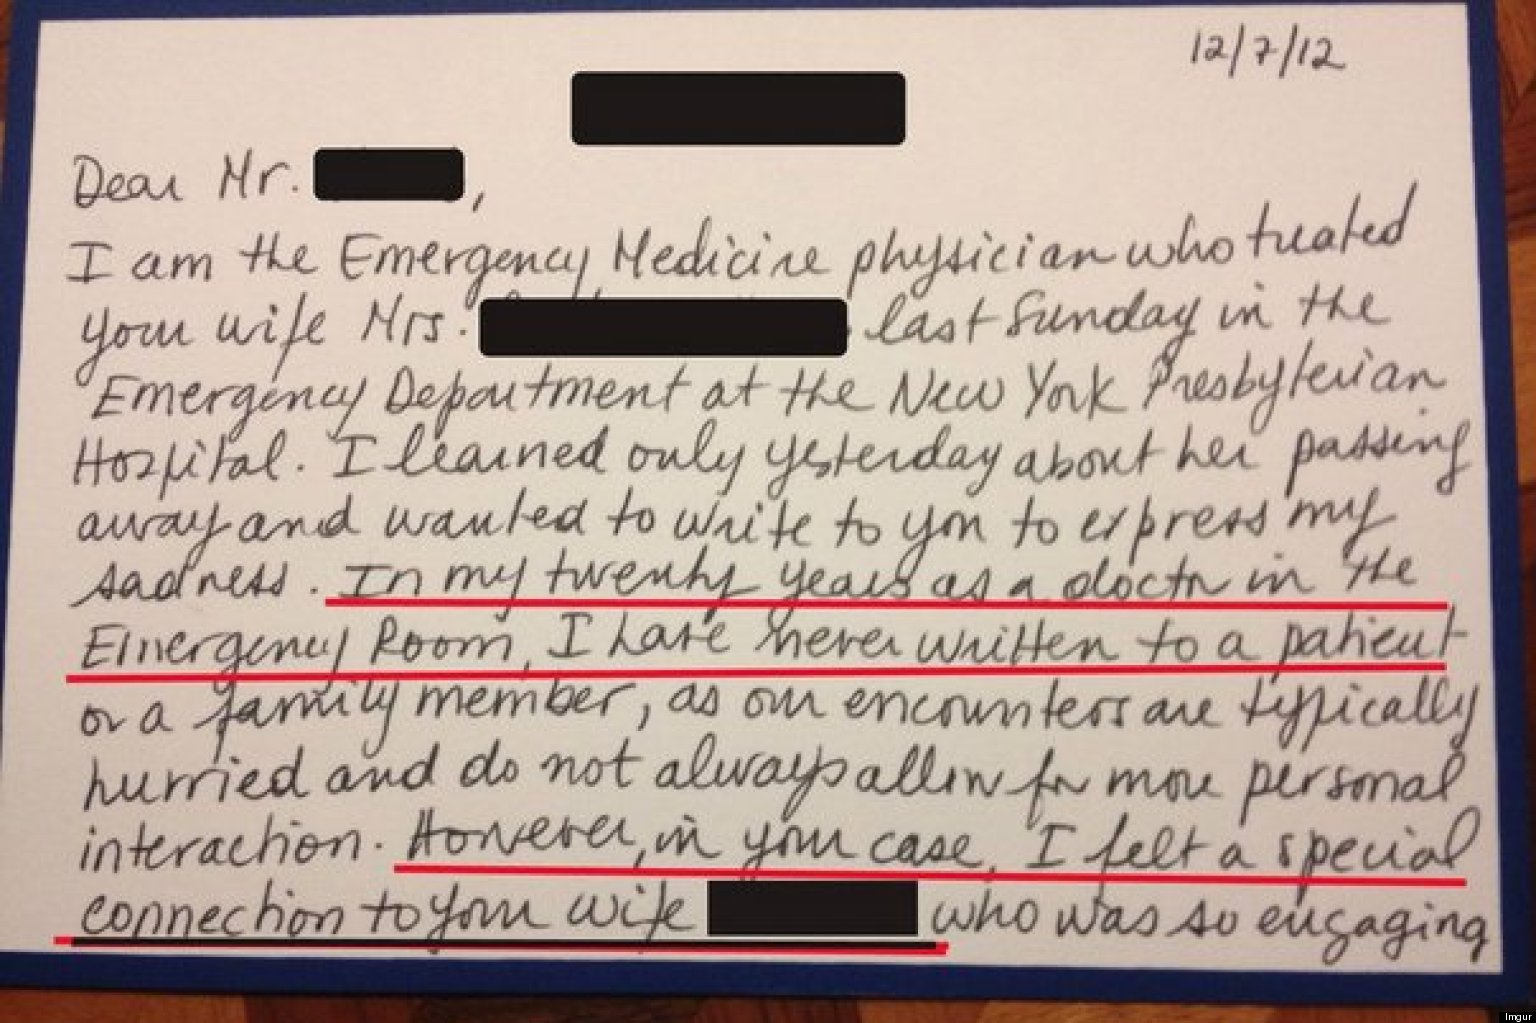 12/7/12
Dear Mr. ,
I am the Emergency Medicine physician who treated
your wife Mrs. last Sunday in the
Emergency Department at the New York Presbyterian
Hospital. I learned only yesterday about her passing
away and wanted to write to you to express my
sadness. In my twenty years as a doctor in the
Emergency Room, I have never written to a patient
or a family member, as our encounters are typically
hurried and do not always allow for more personal
interaction. However, in your case, I felt a special
connection to your wife who was so engaging
Imgur